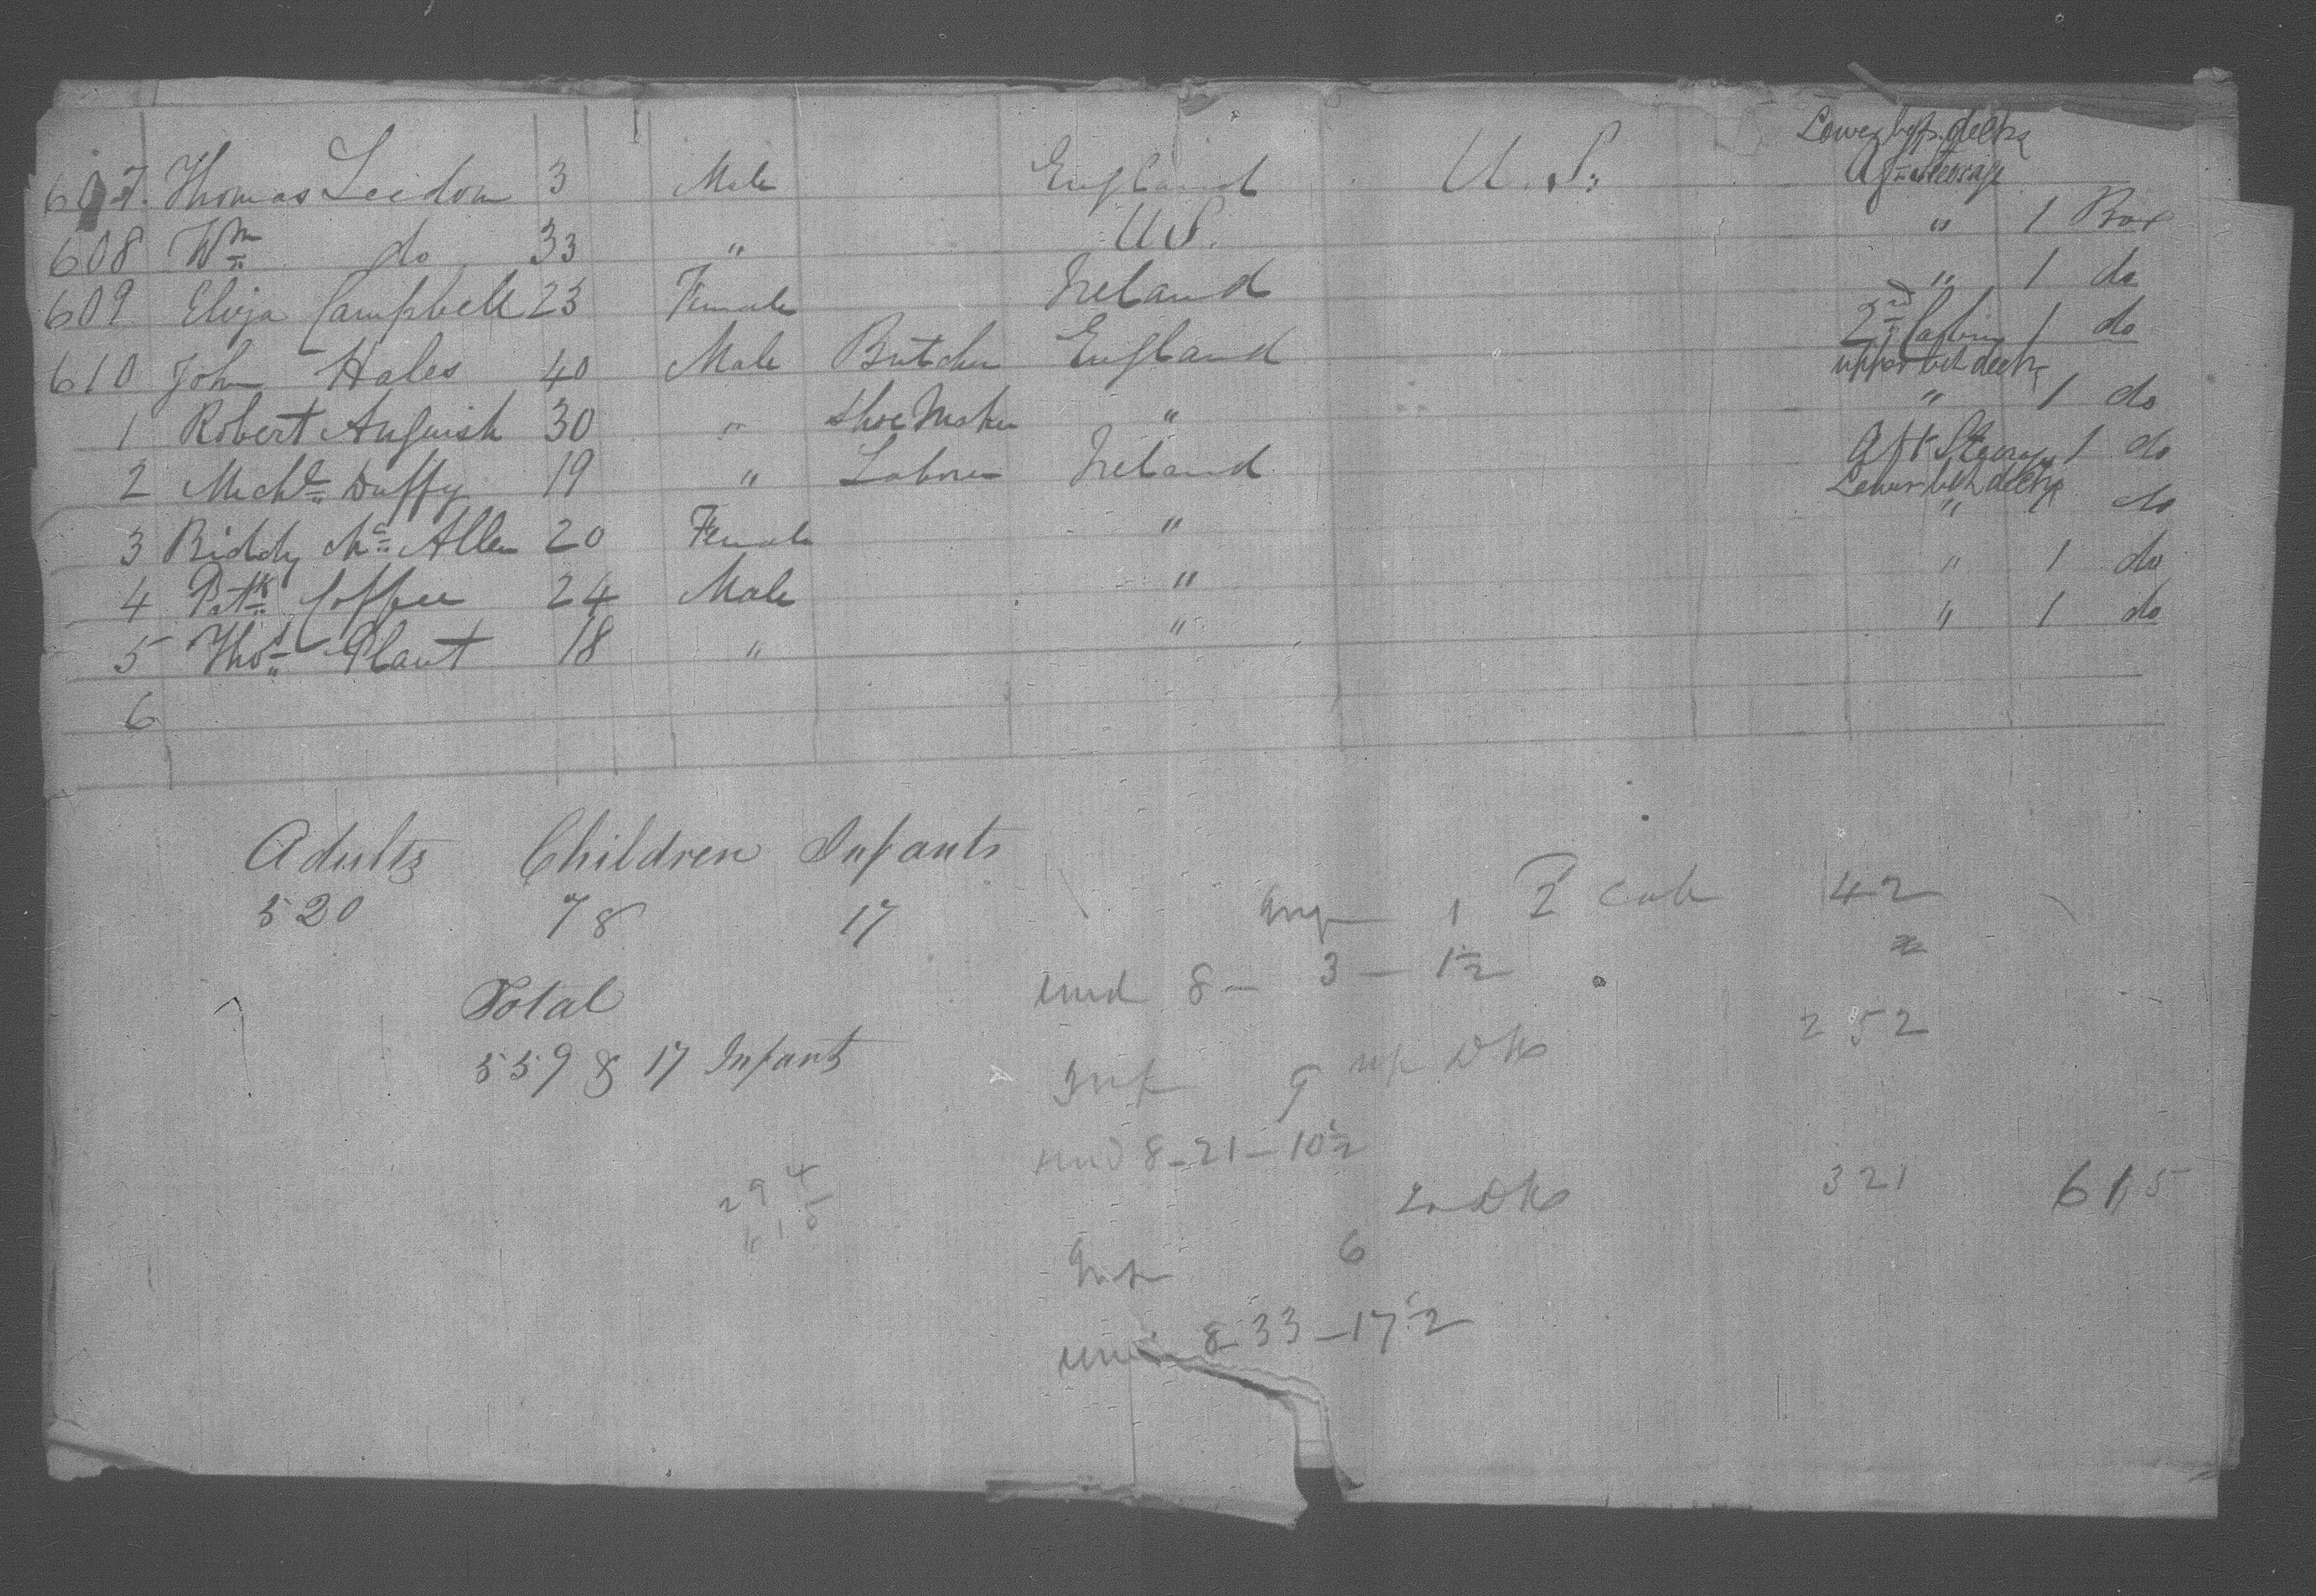 607. Thomas Leedom 3 Male England U.S. Lower betn decks Aft Steerage
608 Wm do 33 " U.S. " 1 Box
609 Eliza Campbell 23 Female Ireland " 1 do
610 John Hales 40 Male Butcher England 2nd Cabin 1 do
1 Robert Anguish 30 " Shoe Maker " upper bet decks " 1 do
2 Michl Duffy 19 " Laborer Ireland Aft Steerage 1 do
3 Biddy Mc Allen 20 Female " Lower bet decks " 1 do
4 Patk Coffee 24 Male " " 1 do
5 Thos Plant 18 " " " 1 do
6
Adults Children Infants
520 78 17
1 2 Cab 42
und 8 - 3 - 1½
Total
559 & 17 Infants
252
Inf 9 up Dks
und 8 - 21 - 10½
294
615
Lo Dks 321 615
Inf 6
und 8 33 - 17½